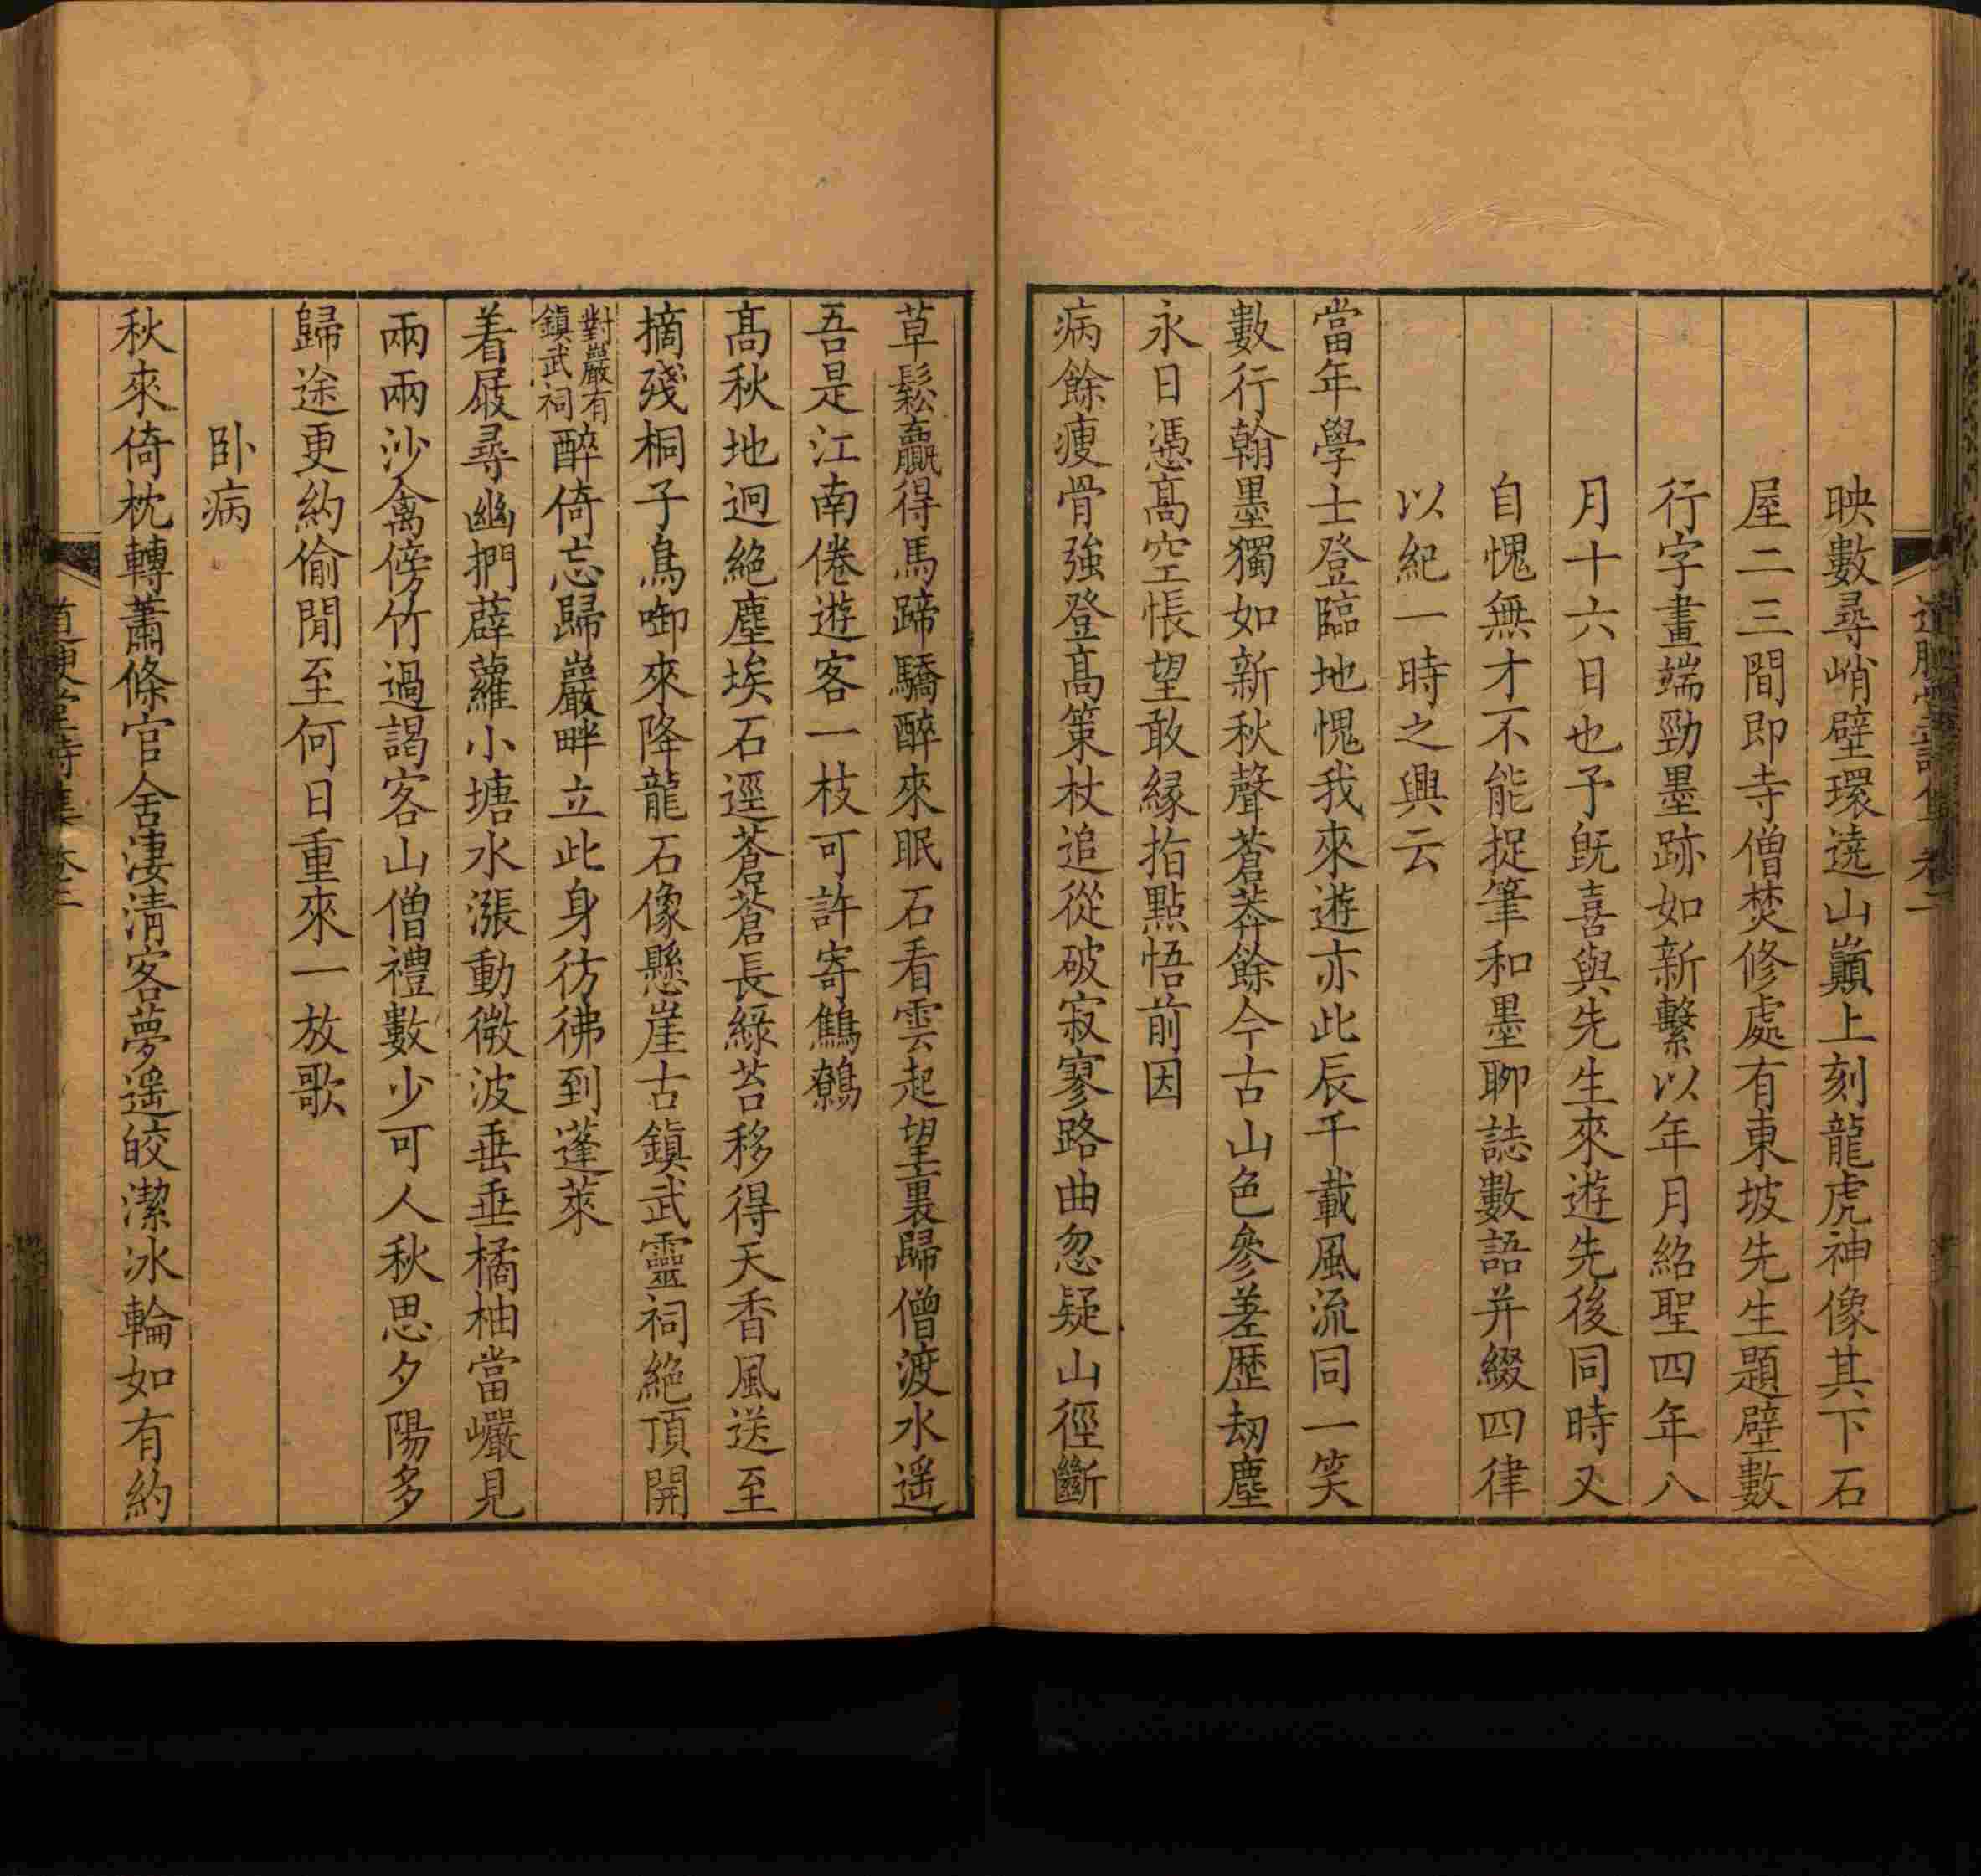 映數尋峭壁環遶山巔上刻龍虎神像其下石
屋二三間即寺僧焚修處有東坡先生題壁數
行字畫端勁墨跡如新繫以年月紹聖四年八
月十六日也予既喜與先生來遊先後同時又
自愧無才不能捉筆和墨聊誌數語并綴四律
以紀一時之興云
當年學士登臨地愧我來遊亦此辰千載風流同一笑
數行翰墨獨如新秋聲蒼莽餘今古山色參差歷劫塵
永日憑高空悵望敢緣指點悟前因
病餘瘦骨強登高策杖追從破寂寥路曲忽疑山徑斷
草鬆贏得馬蹄驕醉來眠石看雲起望裏歸僧渡水遥
吾是江南倦遊客一枝可許寄鷦鷯
高秋地迥絕塵埃石逕蒼蒼長綠苔移得天香風送至
摘殘桐子鳥啣來降龍石像懸崖古鎮武靈祠絕頂開
對巖有
鎮武祠
醉倚忘歸巖畔立此身彷彿到蓬萊
着屐尋幽捫薜蘿小塘水漲動微波垂垂橘柚當巗見
兩兩沙禽傍竹過謁客山僧禮數少可人秋思夕陽多
歸途更約偷閒至何日重來一放歌
卧病
秋來倚枕轉蕭條官舍淒清客夢遥皎潔冰輪如有約